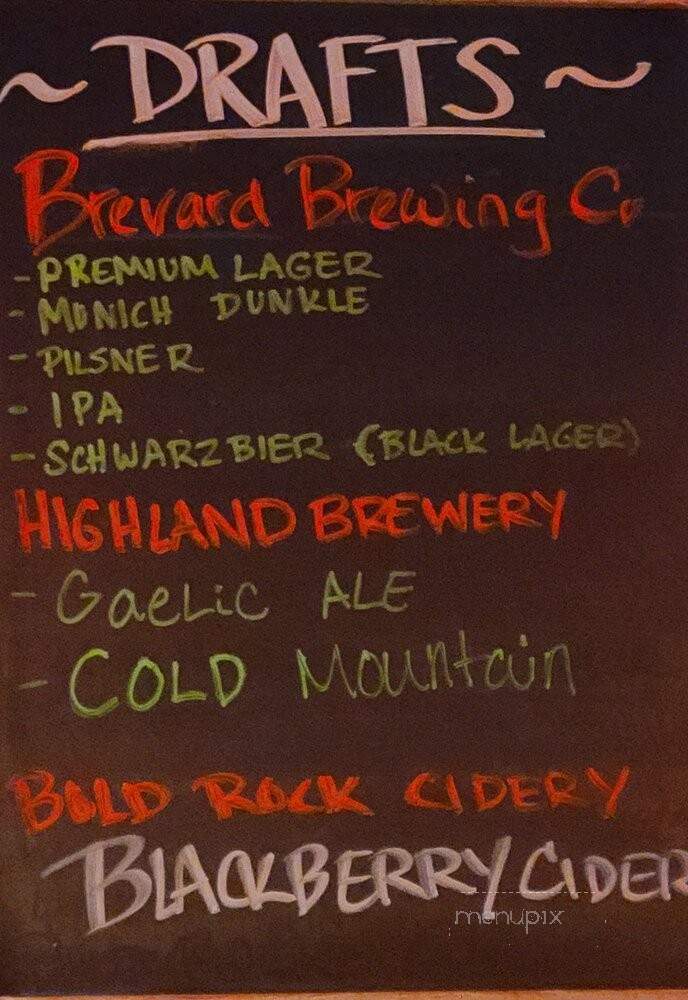 ~ DRAFTS ~
Brevard Brewing Co
- PREMIUM LAGER
- MUNICH DUNKLE
- PILSNER
- IPA
- SCHWARZBIER (BLACK LAGER)
HIGHLAND BREWERY
- Gaelic ALE
- COLD Mountain
BOLD ROCK CIDERY
BLACKBERRY CIDER
menupix